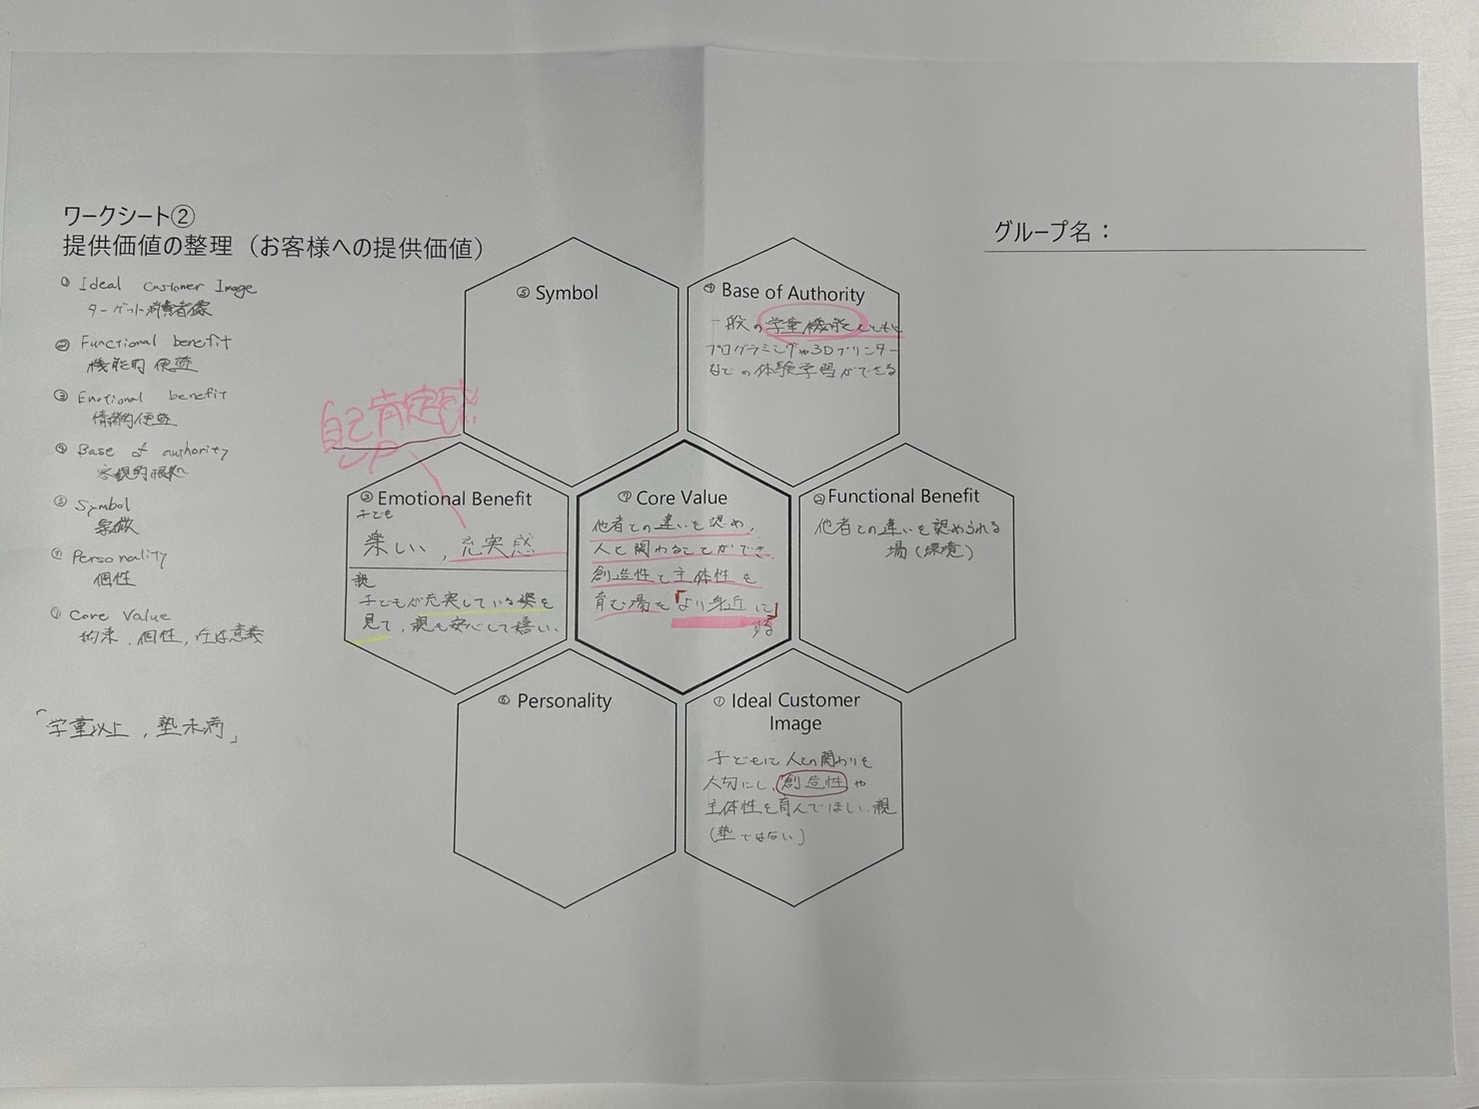 ワークシート②
提供価値の整理（お客様への提供価値）
グループ名：
① Ideal Customer Image
ターゲット消費者像
② Functional benefit
機能的便益
③ Emotional benefit
情緒的便益
④ Base of authority
客観的根拠
⑤ Symbol
象徴
⑥ Personality
個性
⑦ Core Value
約束、個性、存在意義
「学童以上、塾未満」
⑤ Symbol
④ Base of Authority
一般の学童機能とともに
プログラミングや3Dプリンター
などの体験学習ができる
自己肯定感
UP
③ Emotional Benefit
子ども
楽しい、充実感
親
子どもが充実している姿を
見て、親も安心して嬉しい。
⑦ Core Value
他者との違いを認め、
人と関わることができ、
創造性と主体性を
育む場を「より身近に」
する
② Functional Benefit
他者との違いを認められる
場（環境）
⑥ Personality
① Ideal Customer
Image
子どもに人との関わりを
大切にし、創造性や
主体性を育んでほしい親
（塾ではない）